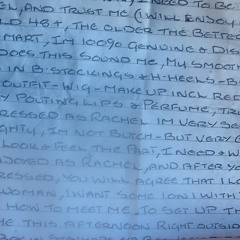 NEED TO BE
EL, AND TRUST ME (I WILL ENJOY
LD 48+, THE OLDER THE BETTER
MART, IM 100% GENUINE & DIS
DOES THIS SOUND ME, MY SMOOTH
IN B-STOCKINGS & H-HEELS-B
OUTFIT-WIG-MAKE UP INCL RED
Y POUTING LIPS & PERFUME, TR
RESSED AS RACHEL IM VERY SE
GHTY, IM NOT BITCH-BUT VERY
LOOK & FEEL THE PART, I NEED & W
ADORED AS RACHEL, AND AFTER YO
RESSED, YOU WILL AGREE THAT I L
WOMAN, I WANT SOME 1 ON 1 WITH
HOW TO MEET ME, TO SET UP TH
ME THIS AFTERNOON RIGHT OUTSID